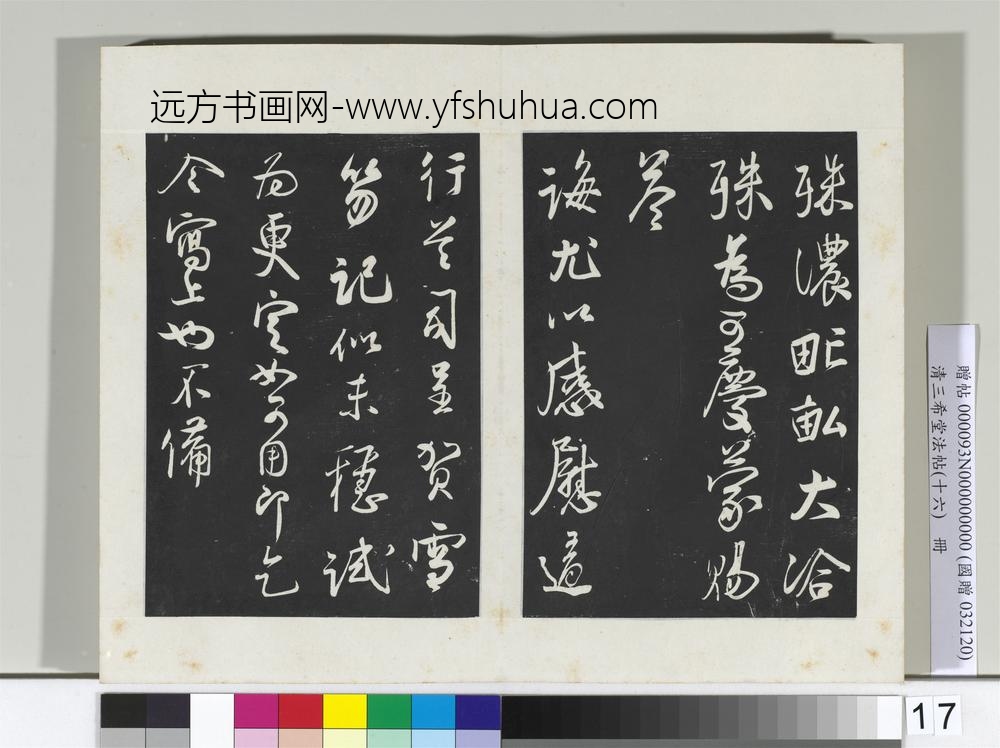 远方书画网-www.yfshuhua.com
殊濃甿畝大洽
殊為可慶蒙賜
答
誨尤以感慰適
行首司呈賀雪
笏記似未穩試
為更定如可用即乞
令寫上也不備
贈帖 000093N000000000 (國贈 032120)
清三希堂法帖(十六) 冊
17